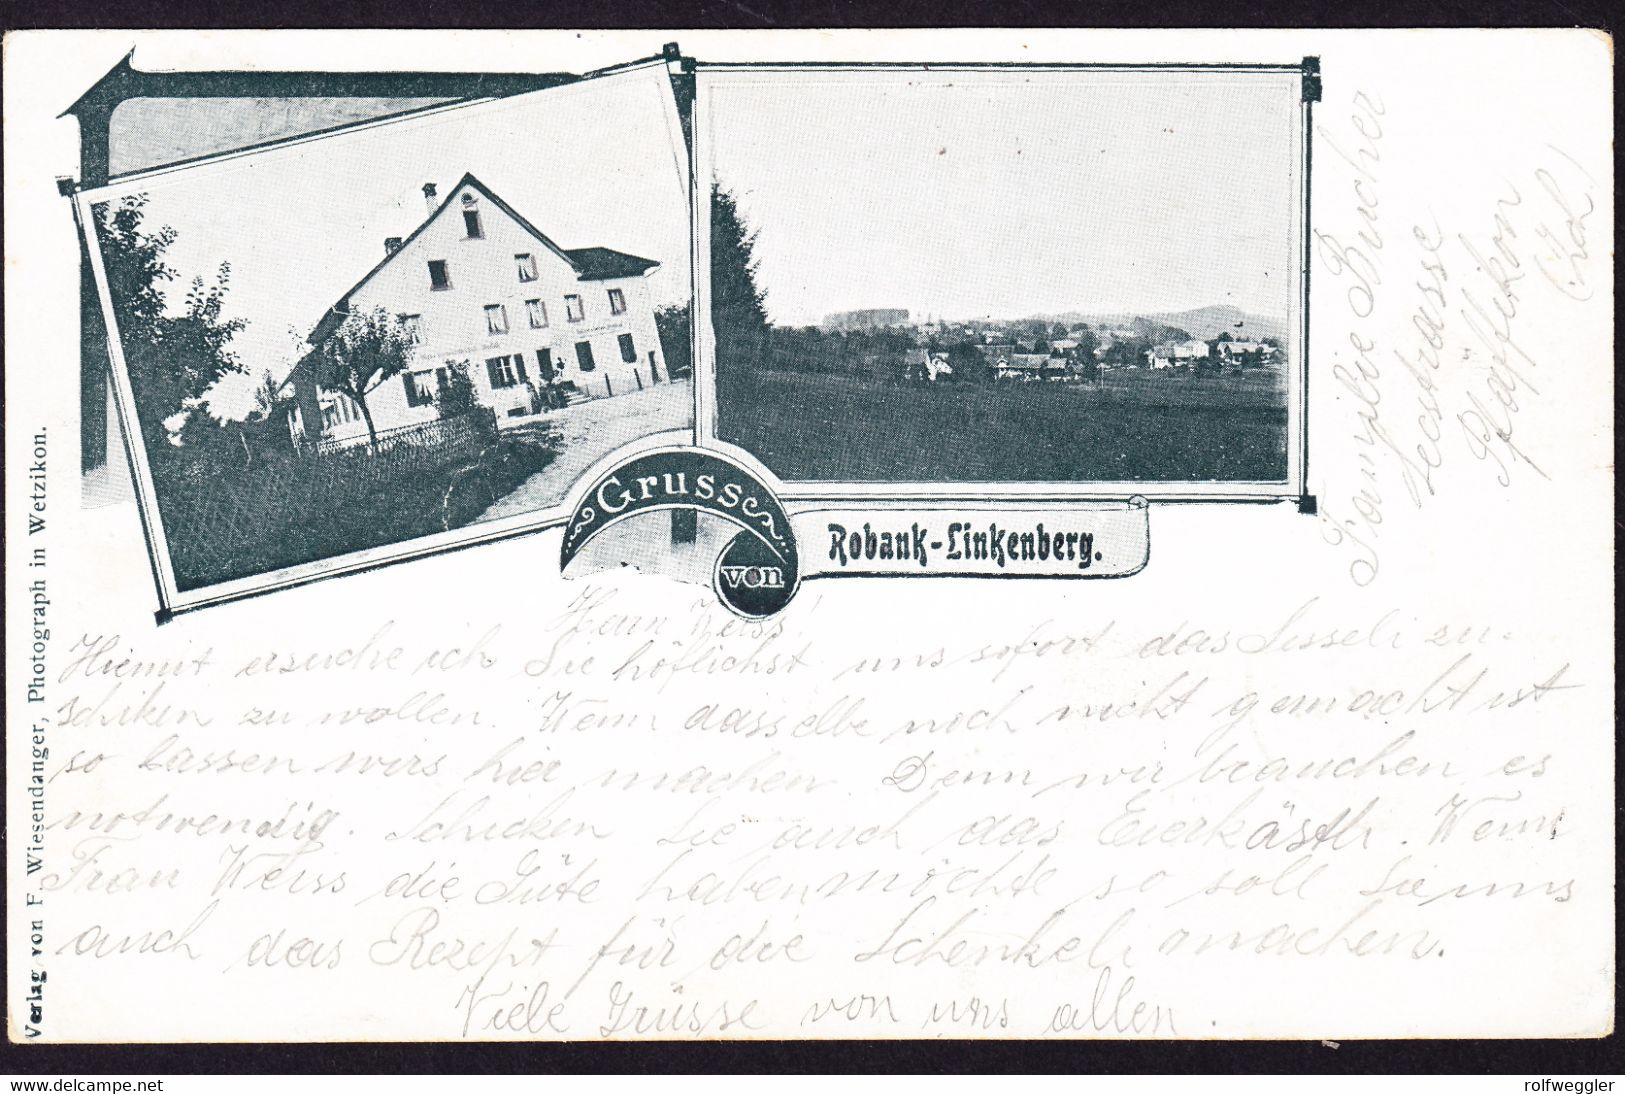 Gruss
von
Robank-Linkenberg.
Verlag von F. Wiesendanger, Photograph in Wetzikon.
Familie Bucher
Seestrasse
Pfäffikon
(Zü)
Herrn Weiss!
Hiemit ersuche ich Sie höflichst uns sofort das Sesseli zu-
schiken zu wollen. Wenn dasselbe noch nicht gemacht ist
so lassen wirs hier machen. Denn wir brauchen es
notwendig. Schicken Sie auch das Eierkästli. Wenn
Frau Weiss die Güte haben möchte so soll Sie uns
auch das Rezept für die Schenkeli machen.
Viele Grüsse von uns allen.
www.delcampe.net
rolfweggler